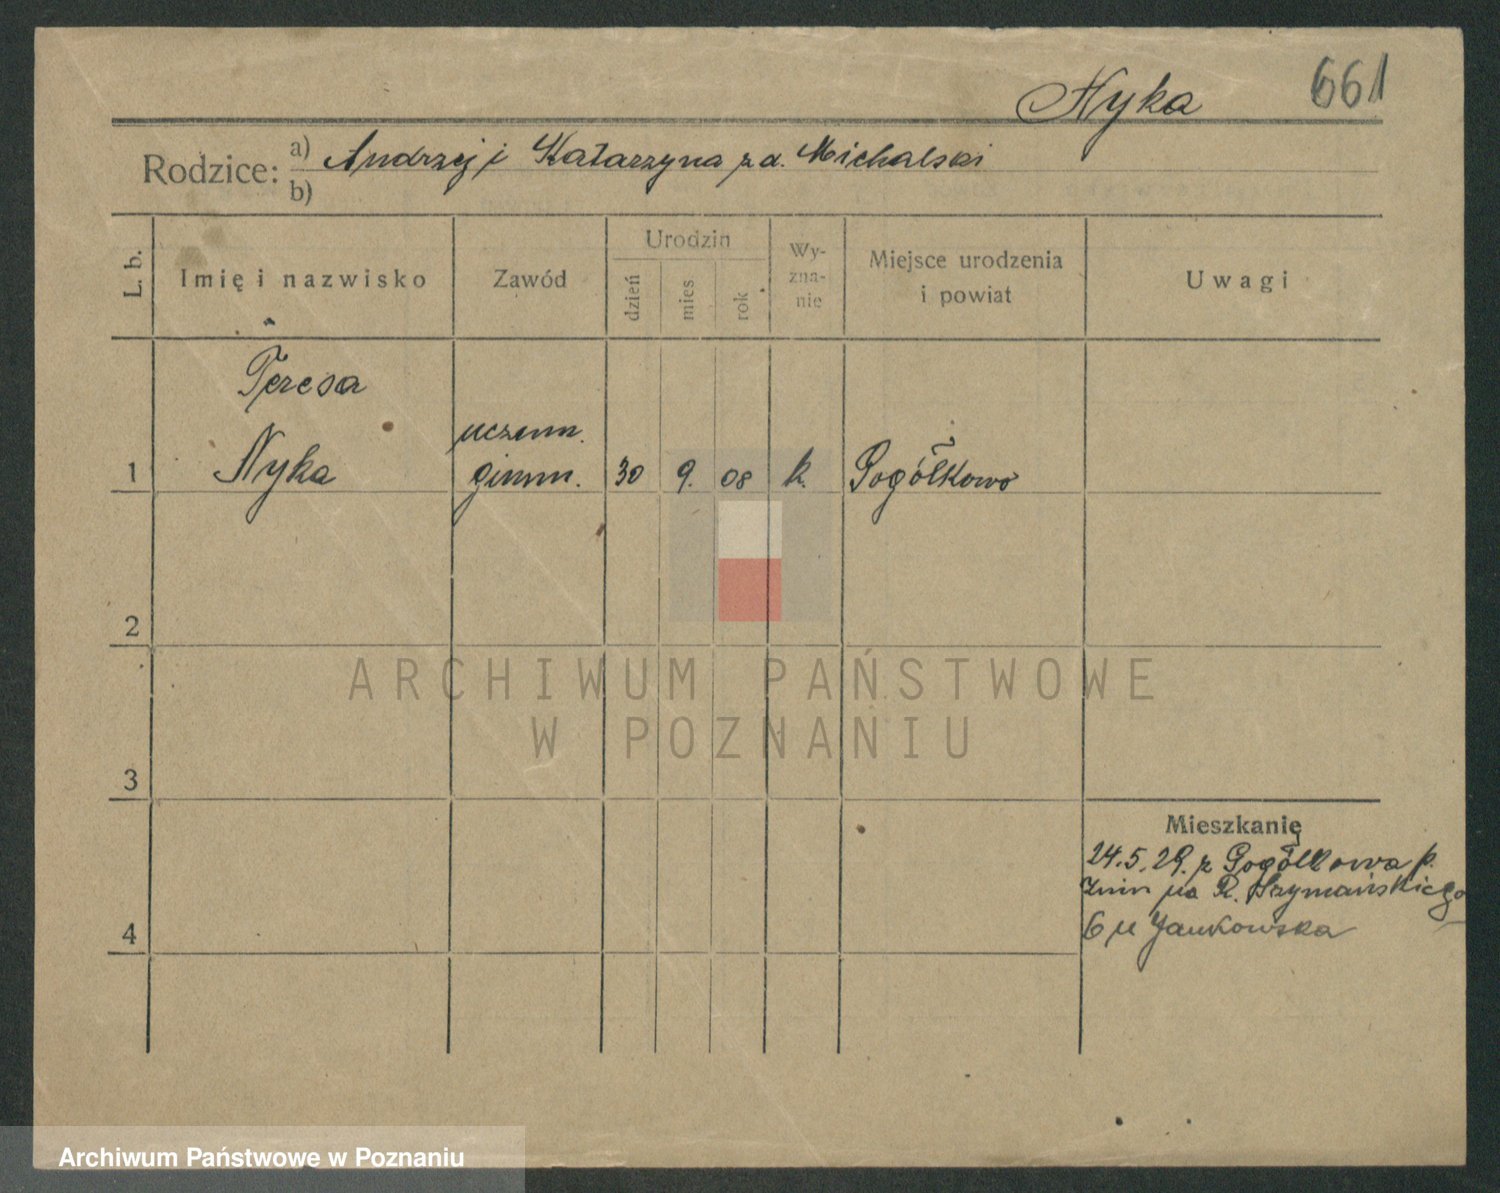 Nyka 661
Rodzice: a) Andrzej i Katarzyna z d. Michalski
b)
L. b. Imię i nazwisko Zawód Urodzin dzień mies. rok Wy-zna-nie Miejsce urodzenia i powiat Uwagi
Teresa
uczenn.
1 Nyka gimn. 30 9. 08 k. Gogółkowo
2
ARCHIWUM PAŃSTWOWE
W POZNANIU
3
Mieszkanie
24.5.29. z Gogółkowa p.
Żnin na R. Szymańskiego
4 6 u Jankowska
Archiwum Państwowe w Poznaniu